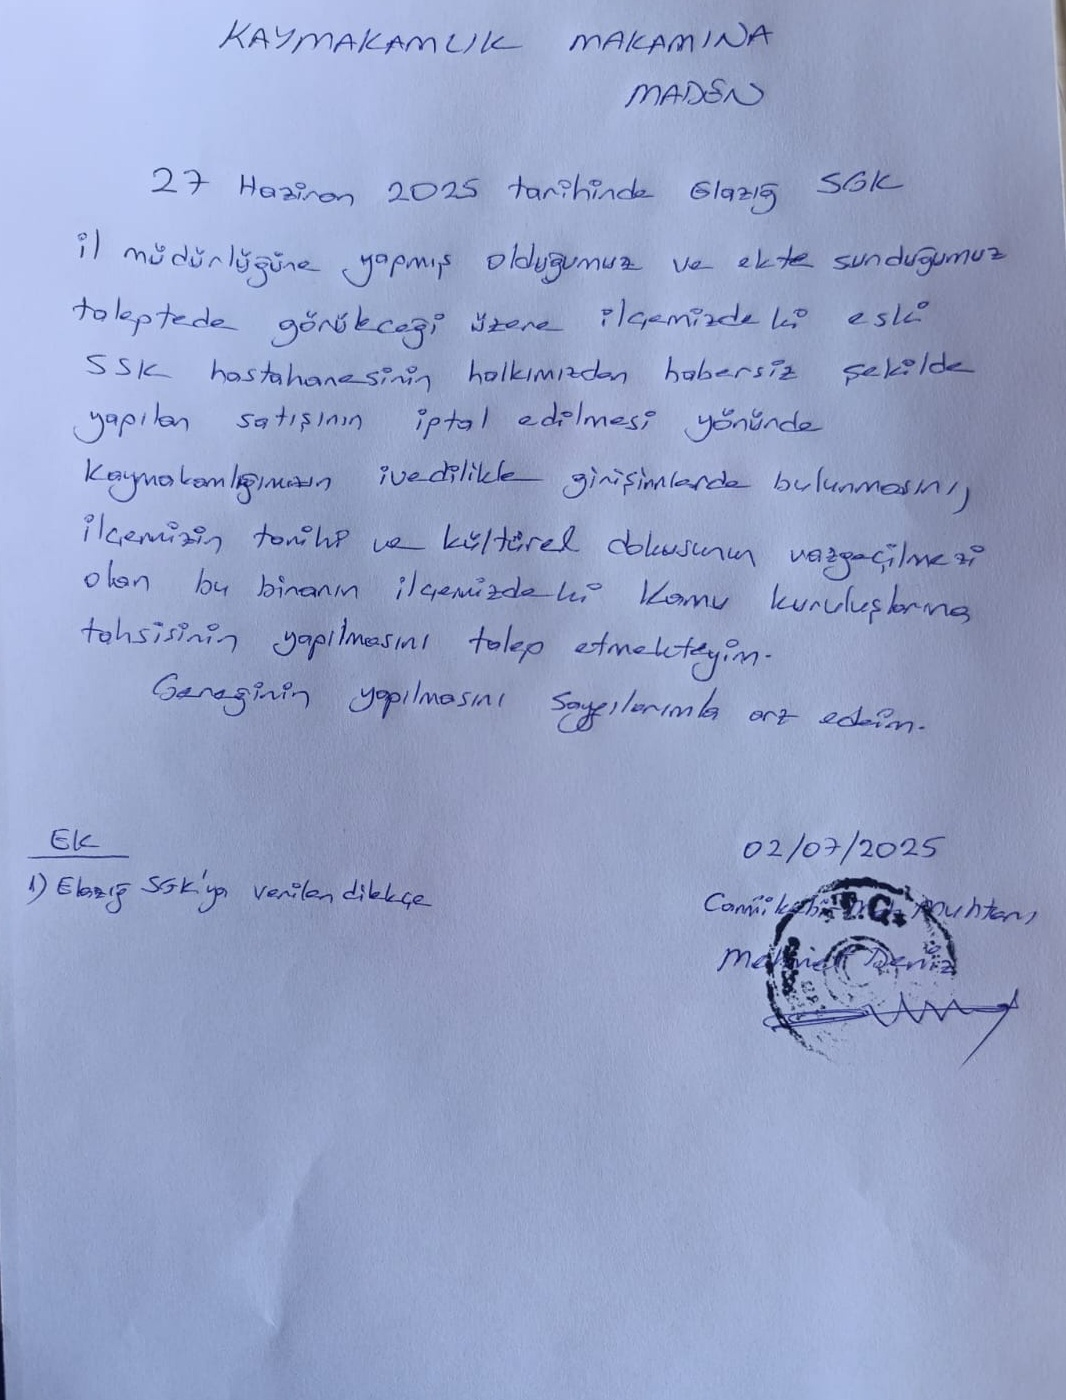 KAYMAKAMLIK MAKAMINA
MADEN
27 Haziran 2025 tarihinde Elazığ SGK
il müdürlüğüne yapmış olduğumuz ve ekte sunduğumuz
taleptede görükceği üzere ilçemizdeki eski
SSK hastahanesinin halkımızdan habersiz şekilde
yapılan satışının iptal edilmesi yönünde
Kaymakamlığımızın ivedilikle girişimlerde bulunmasını,
ilçemizin tarihi ve kültürel dokusunun vazgeçilmezi
olan bu binanın ilçemizdeki Kamu kuruluşlarına
tahsisinin yapılmasını talep etmekteyim.
Gereğinin yapılmasını Saygılarımla arz ederim.
Ek
1) Elazığ SGK'ya verilen dilekçe
02/07/2025
Camikebir Mah. Muhtarı
T.C.
Mehmet Deniz